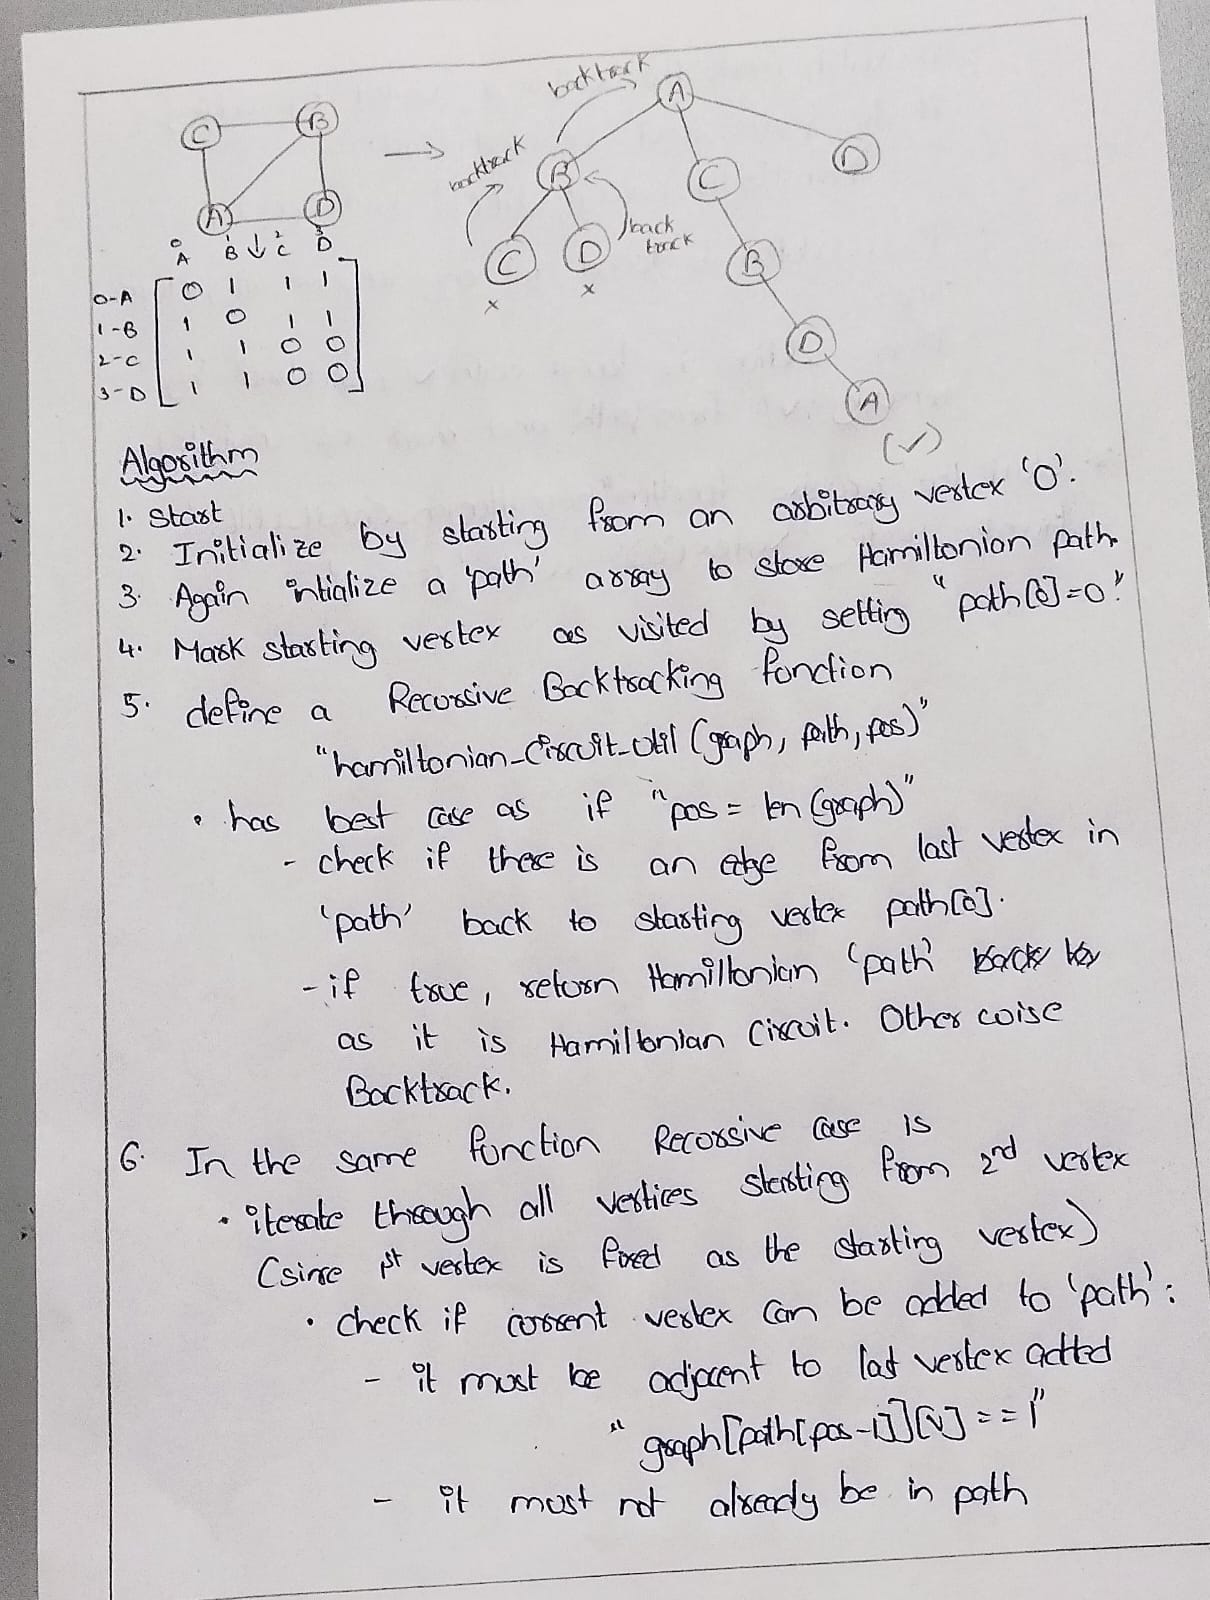 backtrack
A
C B
backtrack
B C D
A D
back
track
C D B
0 1 2 3
A B C D
x x
0-A 0 1 1 1
1-B 1 0 1 1
2-C 1 1 0 0
3-D 1 1 0 0
D
A
(✓)
Algorithm
1. Start
2. Initialize by starting from an arbitrary vertex '0'.
3. Again intialize a 'path' array to store Hamiltonian path.
4. Mark starting vertex as visited by setting "path[0]=0".
5. define a Recursive Backtracking function
"hamiltonian_Circuit_Util (graph, path, pos)"
• has best case as if "pos = len (graph)"
- check if there is an edge from last vertex in
'path' back to starting vertex path[0].
- if true, return Hamiltonian 'path'
as it is Hamiltonian Circuit. Other wise
Backtrack.
6. In the same function Recursive Case is
• iterate through all vertices starting from 2nd vertex
(since 1st vertex is fixed as the starting vertex)
• check if current vertex can be added to 'path':
- it must be adjacent to last vertex added
"graph[path[pos-1]][v] == 1"
- it must not already be in path